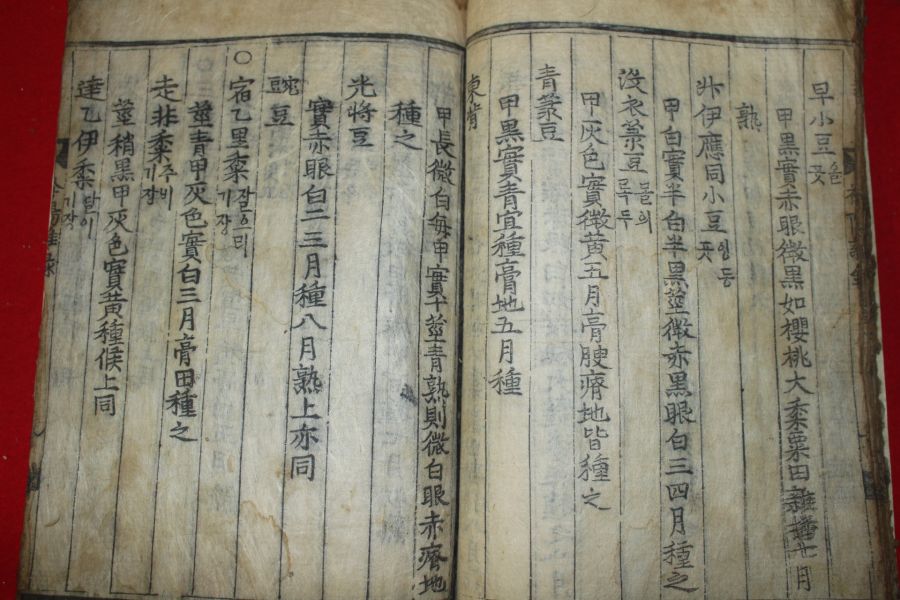 早小豆 올폿
甲黑實赤眼微黑如櫻桃大黍粟田雜種七月
熟
伊應同小豆 잉동폿
甲白實半白半黑莖微赤黑眼白三四月種之
沒衣菉豆 몰의록두
甲灰色實微黃五月膏腴瘠地皆種之
青菉豆
甲黑實青宜種膏地五月種
東背
甲長微白每甲實十莖青熟則微白眼赤瘠地
種之
光將豆
實赤眼白二三月種八月熟上亦同
豌豆
○宿乙里黍 잘으리기장
莖青甲灰色實白三月膏田種之
走非黍 추비기장
莖稍黑甲灰色實黃種候上同
達乙伊黍 달이기장